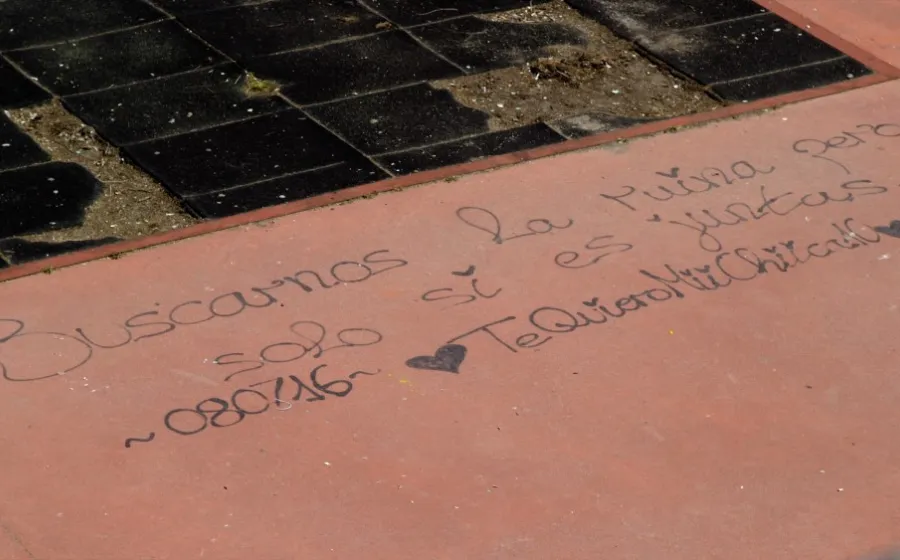 Buscarnos la ruina pero
solo si es juntas
~080716~ ♥TeQuieroMiiChiicaN♥